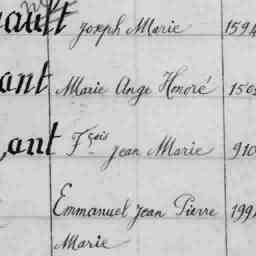 Joseph Marie 1594
ant Marie Ange Honoré
ant Fçois Jean Marie 910
Emmanuel Jean Pierre 199
Marie